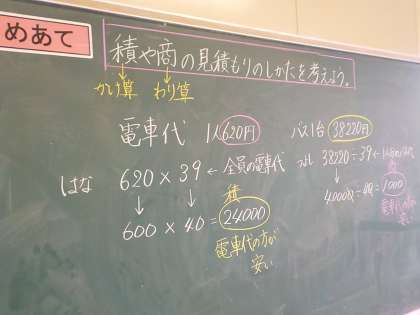 めあて
積や商の見積もりのしかたを考えよう。
かけ算 わり算
電車代 1人620円
はな 620×39←全員の電車代
↓ ↓ 積
600×40=24000
電車代の方が
安い
バス1台 38220円
38220÷39←
↓
40000÷40=1000
電車代の
安い